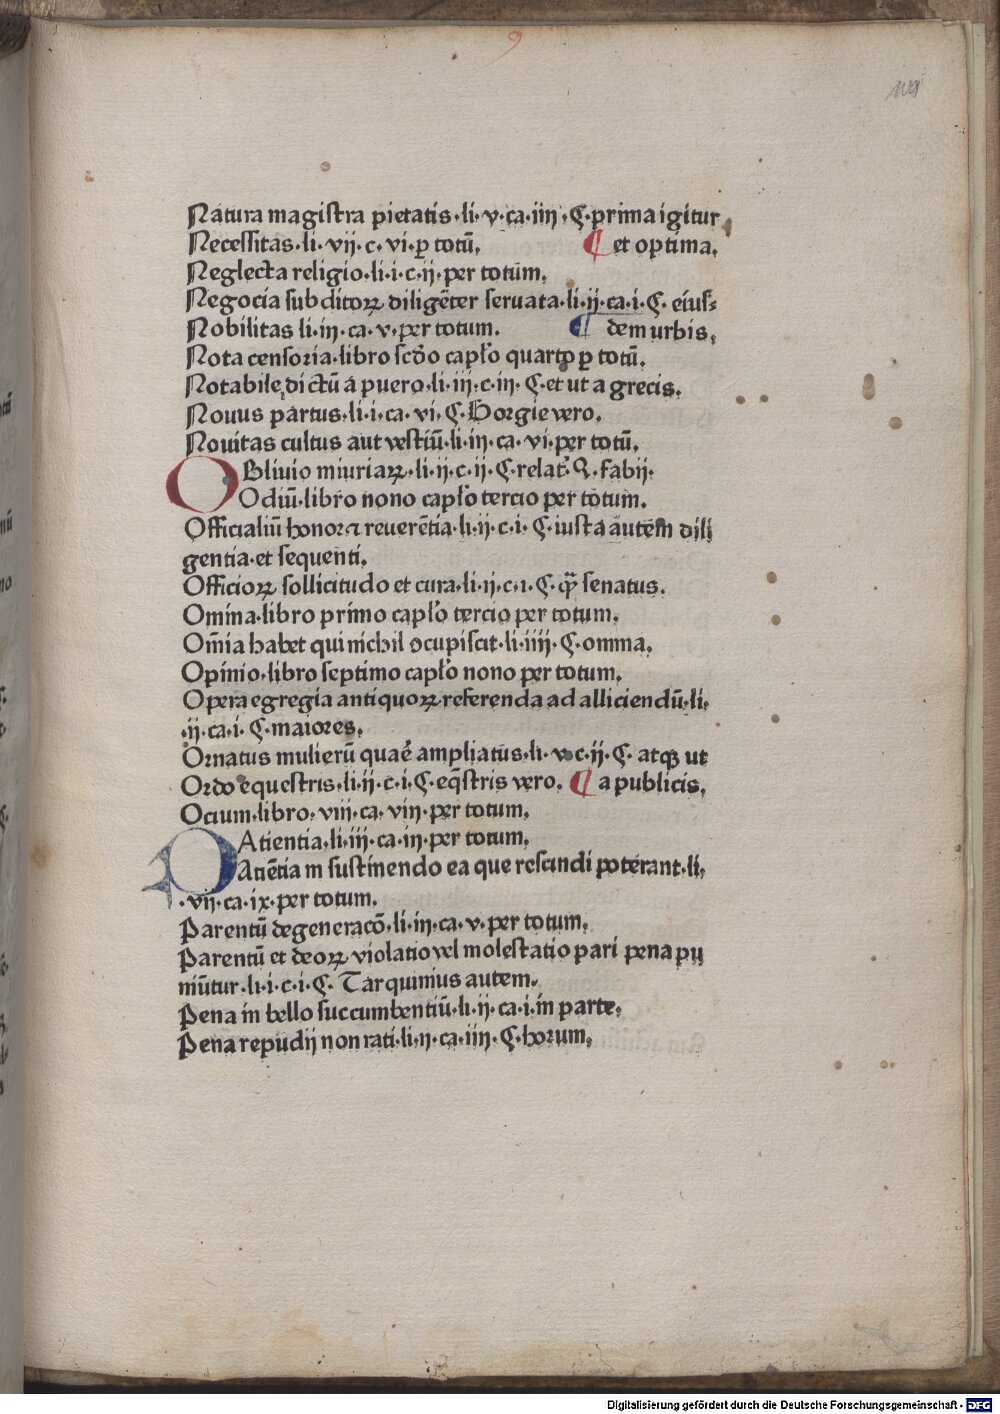 9
Natura magistra pietatis·li·v·ca·iiij·ꝯ·prima igitur
Necessitas·li·vij·c·vi·ꝑ totū. ¶ et optima.
Neglecta religio·li·i·c·ij·per totum.
Negocia subditoꝝ diligēter seruata·li·ij·ca·i·ꝯ· eius⸗
Nobilitas li·iij·ca·v·per totum. ¶ dem urbis.
Nota censoria·libro scďo capľo quarto ꝑ totū.
Notabile dictū a puero·li·iij·c·iij·ꝯ·et ut a grecis.
Nouus partus·li·i·ca·vi·ꝯ·Gorgie vero.
Nouitas cultus aut vestiū·li·iij·ca·vi·per totū.
OBliuio iniuriaꝝ·li·ij·c·ij·ꝯ·relat᷒·Q·fabij·
Odiū·libro nono capľo tercio per totum.
Officialiū honor ⁊ reuerētia·li·ij·c·i·ꝯ·iusta autem dili
gentia·et sequenti.
Officioꝝ sollicitudo et cura·li·ij·c·i·ꝯ·qꝫ senatus.
Omina·libro primo capľo tercio per totum.
Om̄ia habet qui nichil ɔcupiscit·li·iiij·ꝯ·omnia.
Opinio·libro septimo capľo nono per totum.
Opera egregia antiquoꝝ referenda ad alliciendū·li·
·ij·ca·i·ꝯ·maiores.
Ornatus mulierū quaē ampliatus·li·v·c·ij·ꝯ· atqꝫ ut
Ordo equestris·li·ij·c·i·ꝯ·eq̄stris vero. ¶ a publicis.
Ocium·libro·viij·ca·viij·per totum.
PAtientia·li·iij·ca·iij·per totum.
Atiētia in sustinendo ea que rescindi poterant·li·
·vij·ca·ix·per totum.
Parentū degeneracō·li·iij·ca·v·per totum.
Parentū et deoꝝ violatio vel molestatio pari pena pu
niūtur·li·i·c·i·ꝯ· Tarquinius autem.
Pena in bello succumbentiū·li·ij·ca·i·in parte.
Pena repudij non rati·li·ij·ca·iiij·ꝯ·horum.
Digitalisierung gefördert durch die Deutsche Forschungsgemeinschaft - DFG